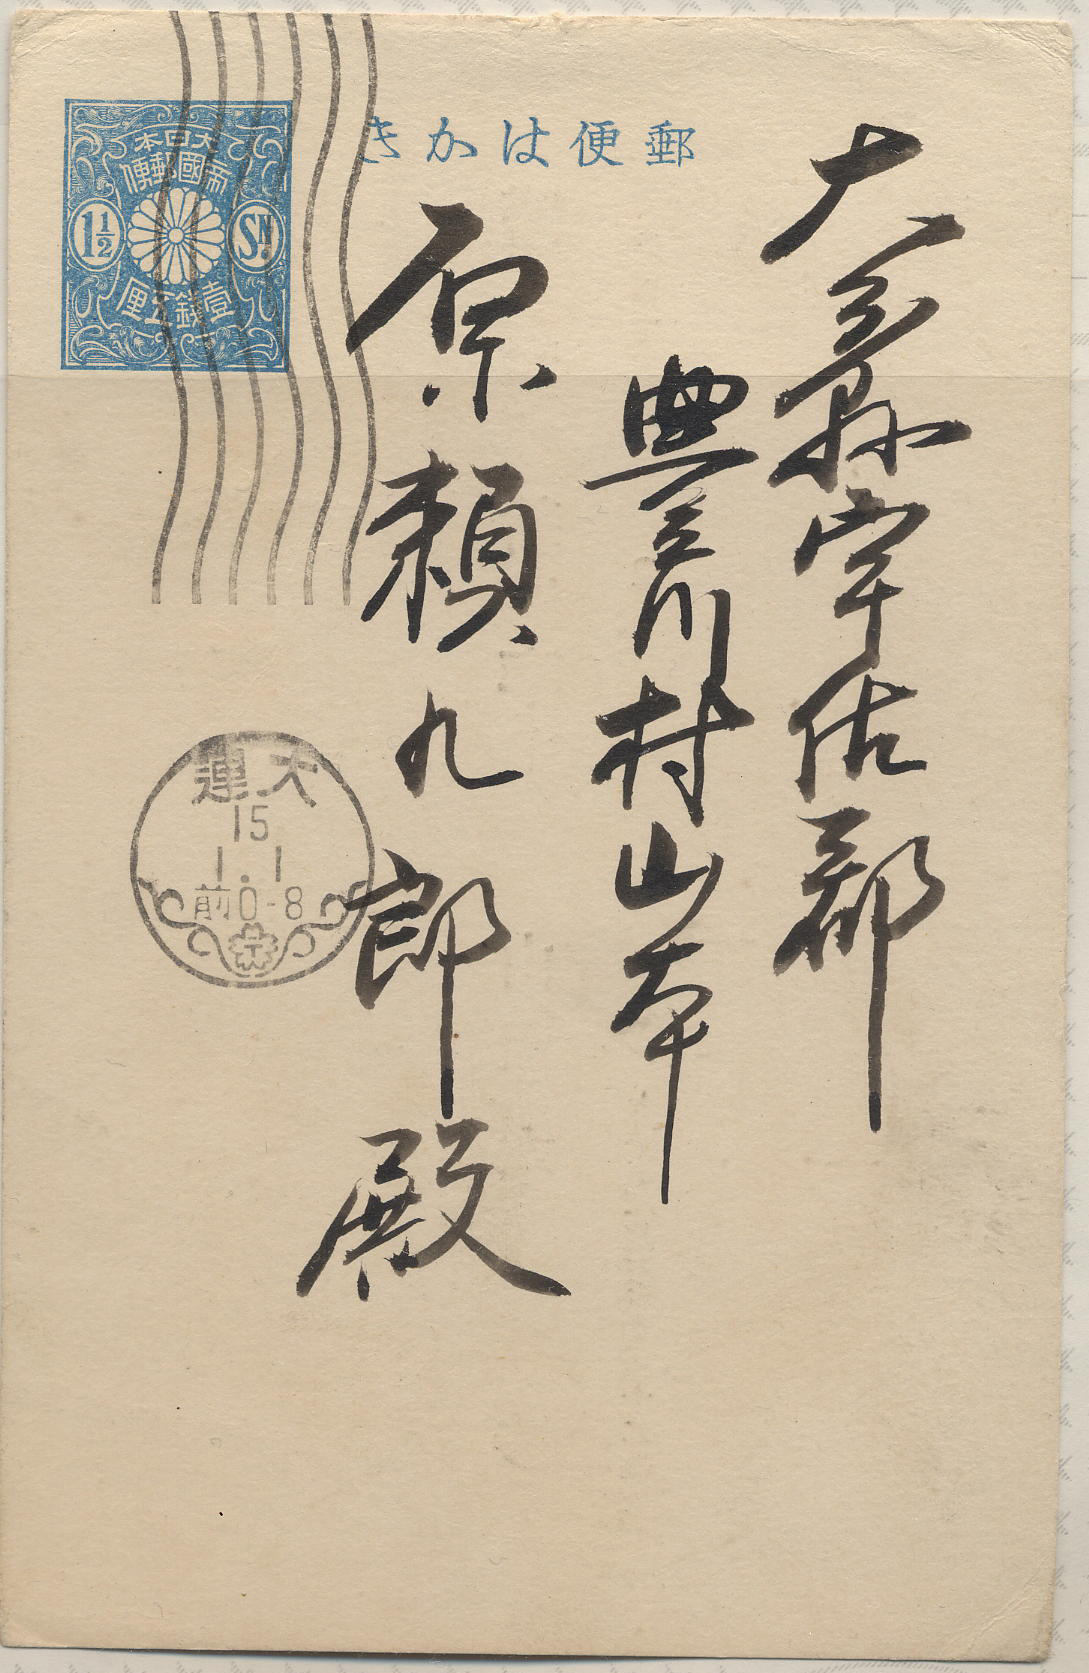 郵便はかき
大日本
帝國郵便
1½ SN.
壹錢五厘
大分縣宇佐郡
豊川村山本
原頼九郎殿
大連
15
1.1
前0-8